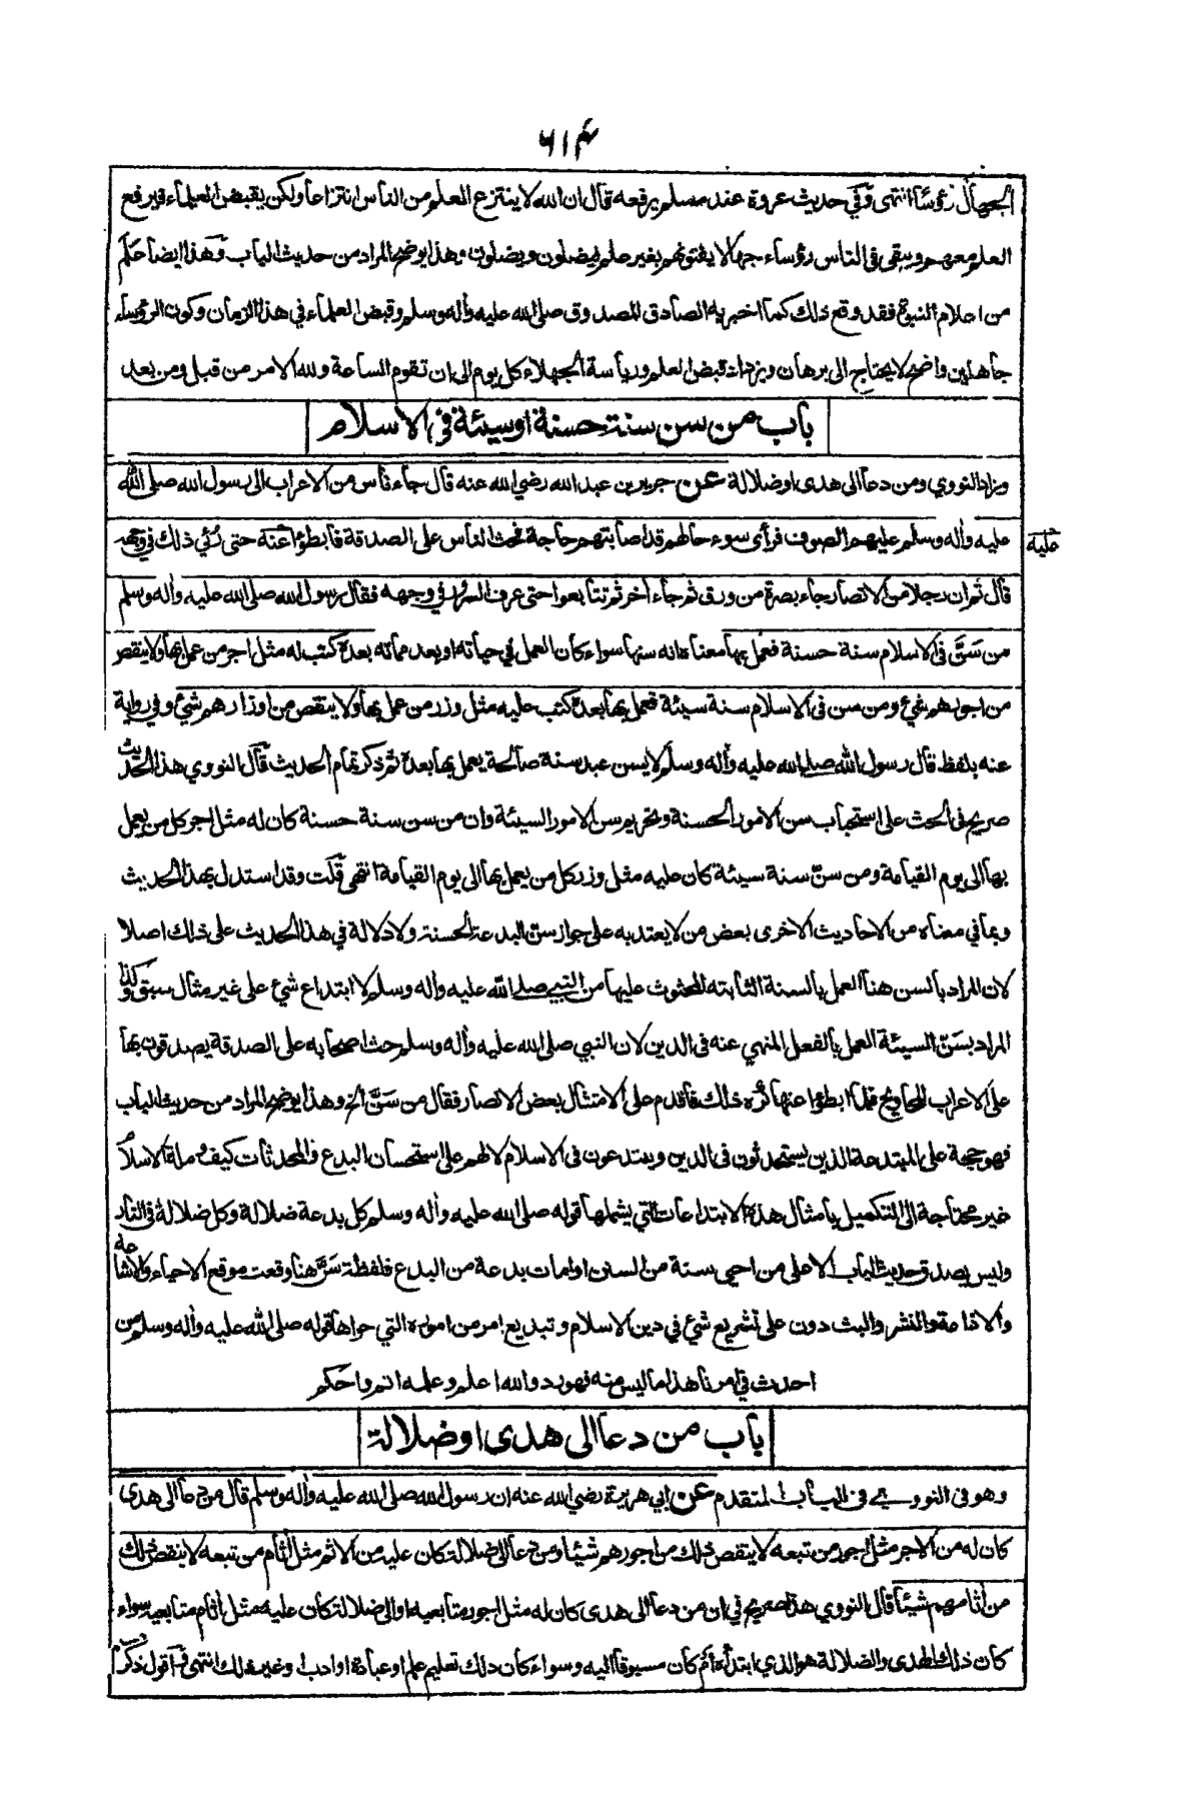 ٦١۴
الجهال رؤسا انتهى وفي حديث عروة عند مسلم يرفعه قال ان الله لا ينتزع العلم من الناس انتزاعا ولكن يقبض العلماء فيرفع
العلم معهم ويبقى في الناس رؤساء جهالا يفتونهم بغير علم فيضلون ويضلون وهذا يوضح المراد من حديث الباب وهذا ايضا علم
من اعلام النبوة فقد وقع ذلك كما اخبر به الصادق المصدوق صلى الله عليه وأله وسلم وقبض العلماء في هذا الزمان وكون الرؤساء
جاهلين واضح لا يحتاج الى برهان ويزداد قبض العلم ورياسة الجهلاء كل يوم الى ان تقوم الساعة ولله الامر من قبل ومن بعد
باب من سن سنة حسنة او سيئة في الاسلام
وزاد النووي ومن دعا الى هدى او ضلالة عن جرير بن عبد الله رضي الله عنه قال جاء ناس من الاعراب الى رسول الله صلى الله
عليه وأله وسلم عليهم الصوف فرأى سوء حالهم قد اصابتهم حاجة فحث الناس على الصدقة فابطؤا عنه حتى رُئي ذلك في وجهه
قال ثم ان رجلا من الانصار جاء بصرة من ورق ثم جاء أخر ثم تتابعوا حتى عرف السرور في وجهه فقال رسول الله صلى الله عليه وأله وسلم
من سَنَّ في الاسلام سنة حسنة فعمل بها معناه انه سنها سواء كان العمل في حياته او بعد مماته بعده كتب له مثل اجر من عمل بها ولا ينقص
من اجورهم شيء ومن سن في الاسلام سنة سيئة فعمل بها بعده كتب عليه مثل وزر من عمل بها ولا ينقص من اوزارهم شيء وفي رواية
عنه بلفظ قال رسول الله صلى الله عليه وأله وسلم لا يسن عبد سنة صالحة يعمل بها بعده ثم ذكر تمام الحديث قال النووي هذا الحديث
صريح في الحث على استحباب سن الامور الحسنة وتحريم سن الامور السيئة وان من سن سنة حسنة كان له مثل اجر كل من يعمل
بها الى يوم القيامة ومن سنّ سنة سيئة كان عليه مثل وزر كل من يعمل بها الى يوم القيامة انتهى قلت وقد استدل بهذا الحديث
وبما في معناه من الاحاديث الاخرى بعض من لا يعتد به على جواز سنّ البدعة الحسنة ولا دلالة في هذا الحديث على ذلك اصلا
لان المراد بالسن هنا العمل بالسنة الثابته المحثوث عليها من النبي صلى الله عليه وأله وسلم لا ابتداع شيء على غير مثال سبق وكذا
المراد بسَنّ السيئة العمل بالفعل المنهي عنه في الدين لان النبي صلى الله عليه وأله وسلم حث اصحابه على الصدقة يصدقون بها
على الاعراب المحاويج فلما ابطؤا عنها كُره ذلك فاقدم على الامتثال بعض الانصار فقال من سَنَّ الخ وهذا يوضح المراد من حديث الباب
فهو حجة على المبتدعة الذين يستحدثون في الدين ويبتدعون في الاسلام لا لهم على استحسان البدع والمحدثات كيف وملة الاسلام
غير محتاجة الى التكميل بامثال هذه الابتداعات التي يشملها قوله صلى الله عليه وأله وسلم كل بدعة ضلالة وكل ضلالة في النار
وليس يصدق حديث الباب الا على من احيى سنة من السنن او امات بدعة من البدع فلفظة سَنَّ هنا وقعت موقع الاحياء والاشاعة
والاذاعة والنشر والبث دون على تشريع شيء في دين الاسلام وتبديع امر من اموره التي حواها قوله صلى الله عليه وأله وسلم من
احدث في امرنا هذا ما ليس منه فهو رد والله اعلم وعلمه اتم واحكم
باب من دعا الى هدى او ضلالة
وهو في النووي في الباب المتقدم عن ابي هريرة رضي الله عنه ان رسول الله صلى الله عليه وأله وسلم قال من دعا الى هدى
كان له من الاجر مثل اجور من تبعه لا ينقص ذلك من اجورهم شيئا ومن دعا الى ضلالة كان عليه من الاثم مثل أثام من تبعه لا ينقص ذلك
من أثامهم شيئا قال النووي هذا صريح في ان من دعا الى هدى كان له مثل اجور متابعيه او الى ضلالة كان عليه مثل أثام متابعيه سواء
كان ذلك الهدى والضلالة هو الذي ابتدأه أم كان مسبوقا اليه وسواء كان ذلك تعليم علم او عبادة او ادب او غير ذلك انتهى